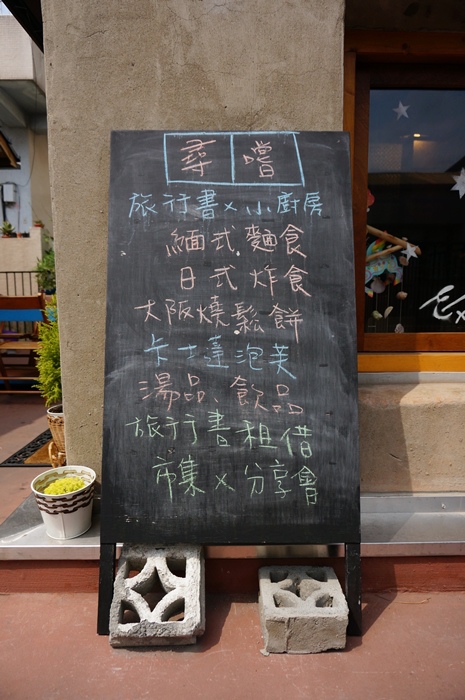 尋嚐
旅行書×小廚房
緬式麵食
日式炸食
大阪燒鬆餅
卡士達泡芙
湯品、飲品
旅行書租借
市集×分享會